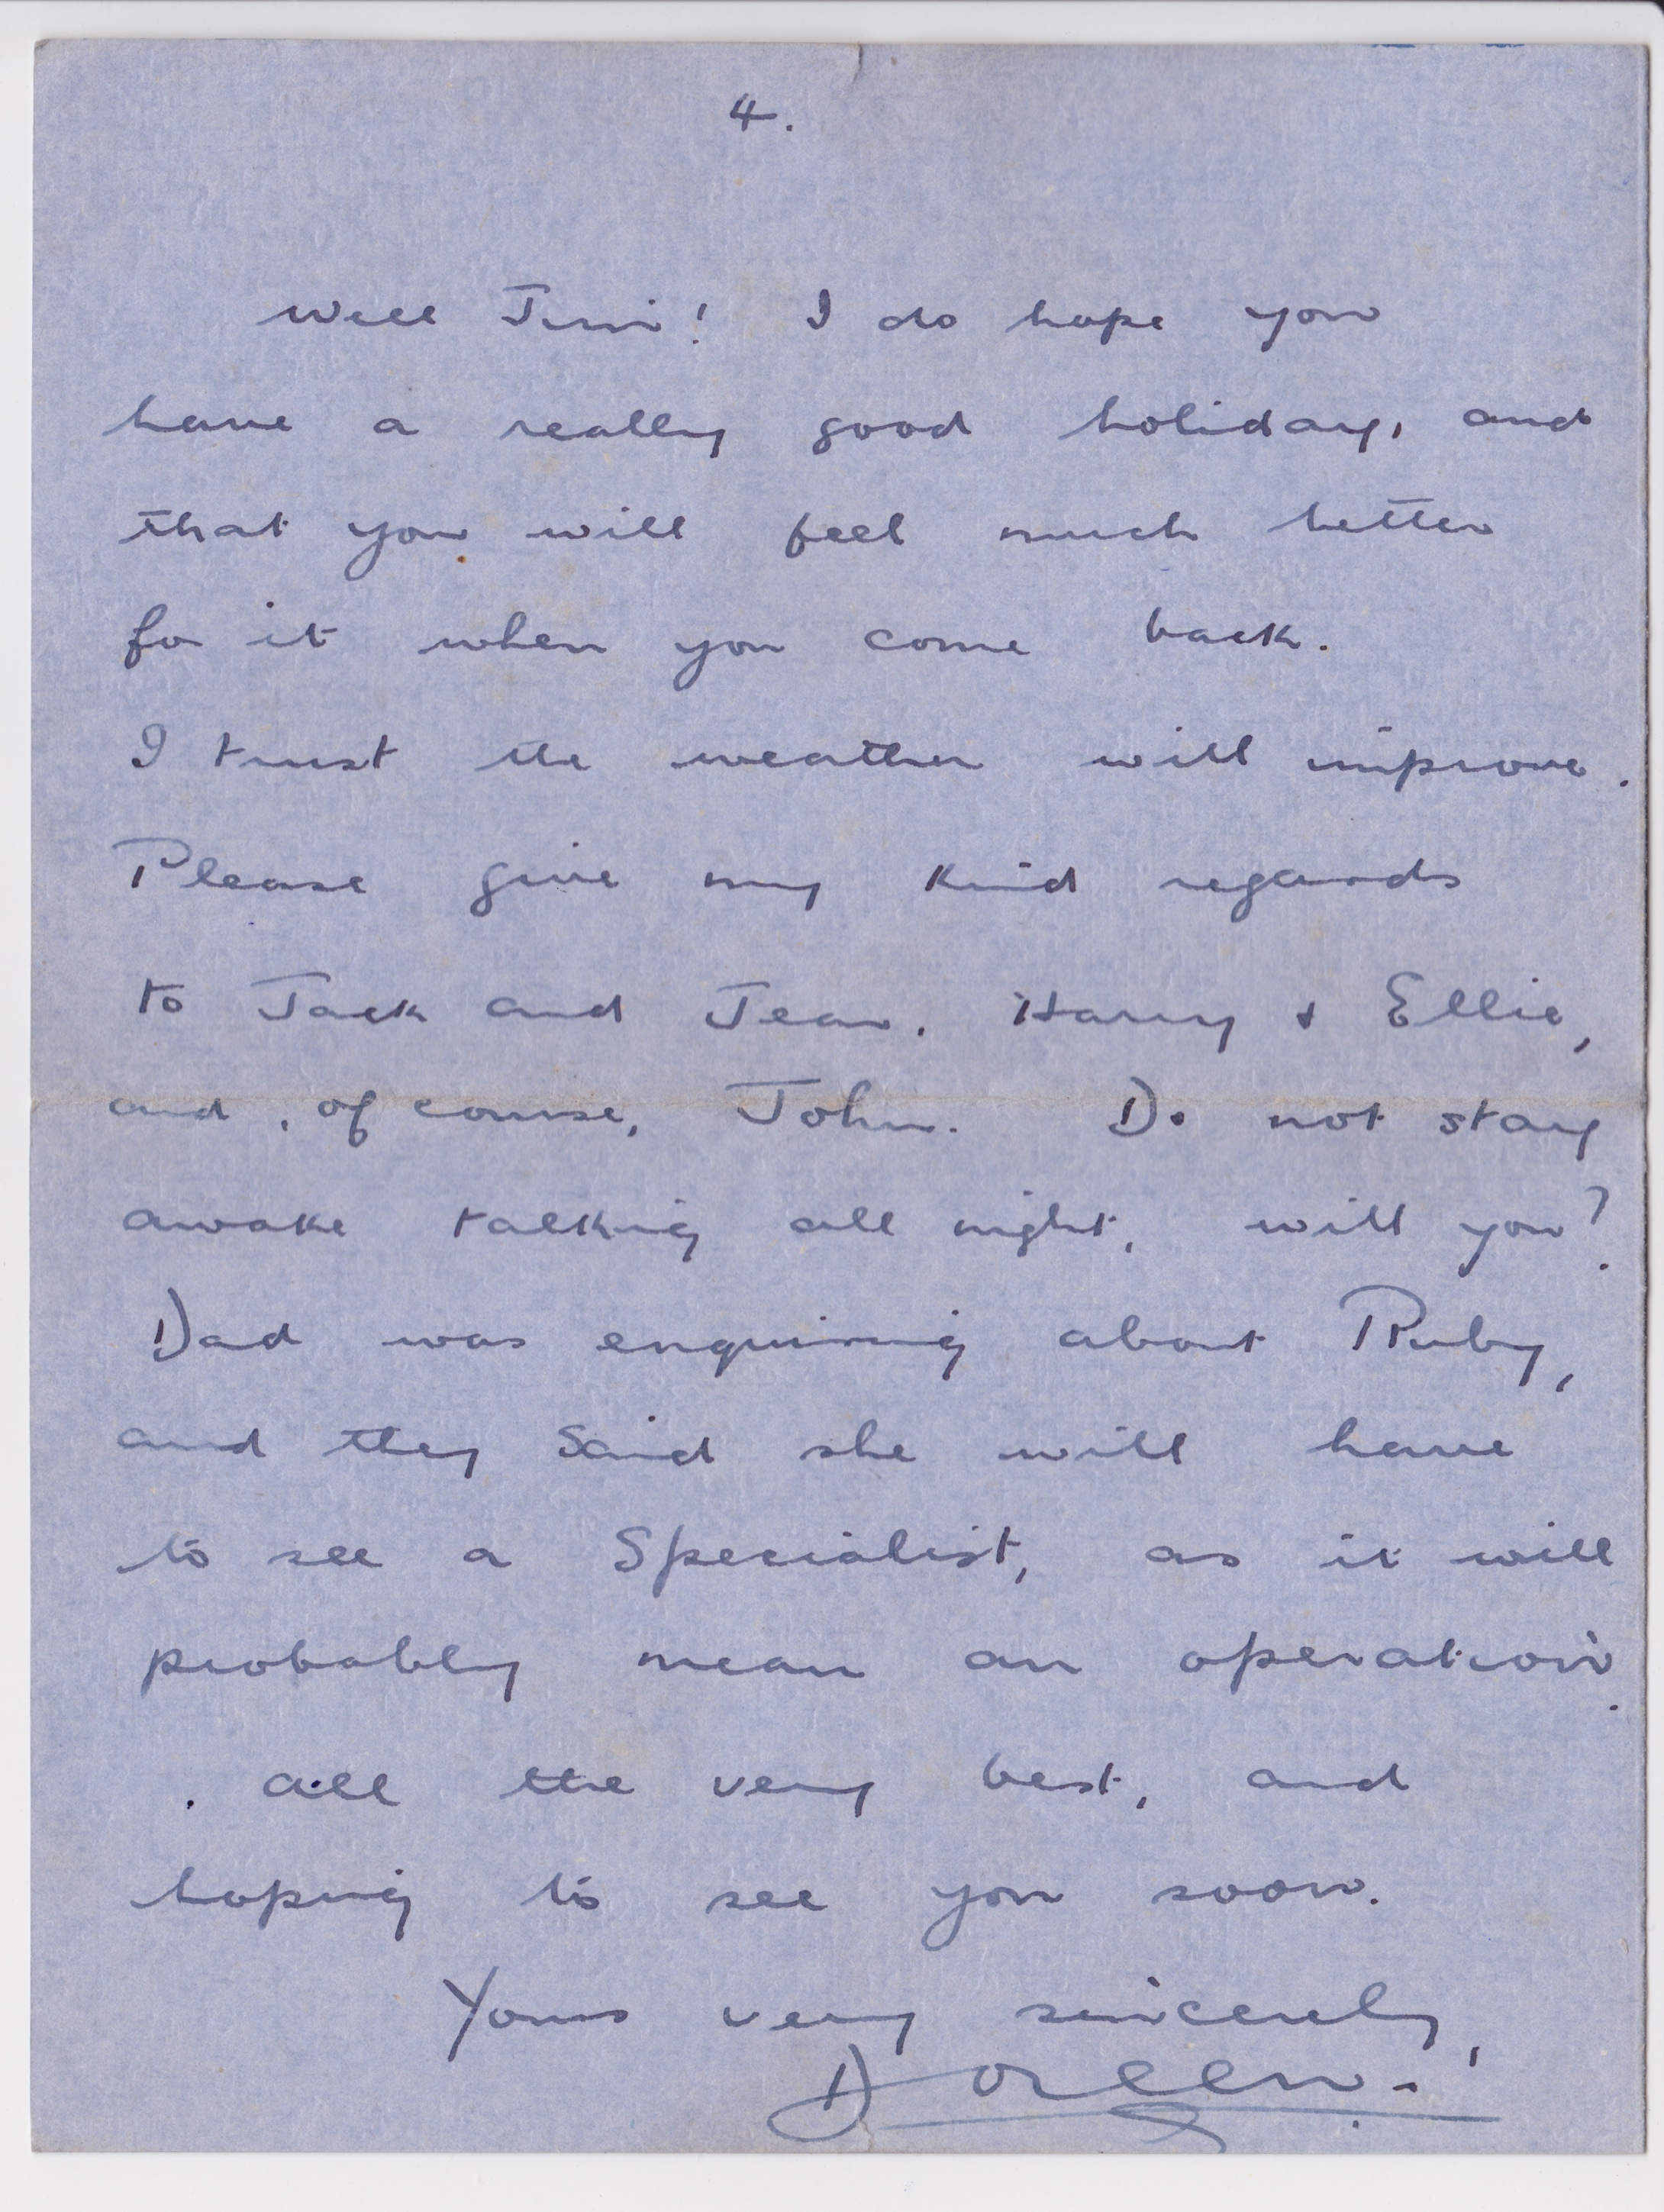 4.
Well Jim! I do hope you
have a really good holiday, and
that you will feel much better
for it when you come back.
I trust the weather will improve.
Please give my kind regards
to Jack and Jean. Harry & Ellie,
and, of course, John. Do not stay
awake talking all night, will you?
Dad was enquiring about Ruby,
and they said she will have
to see a Specialist, as it will
probably mean an operation.
. all the very best, and
hoping to see you soon.
Yours very sincerely,
Doreen.